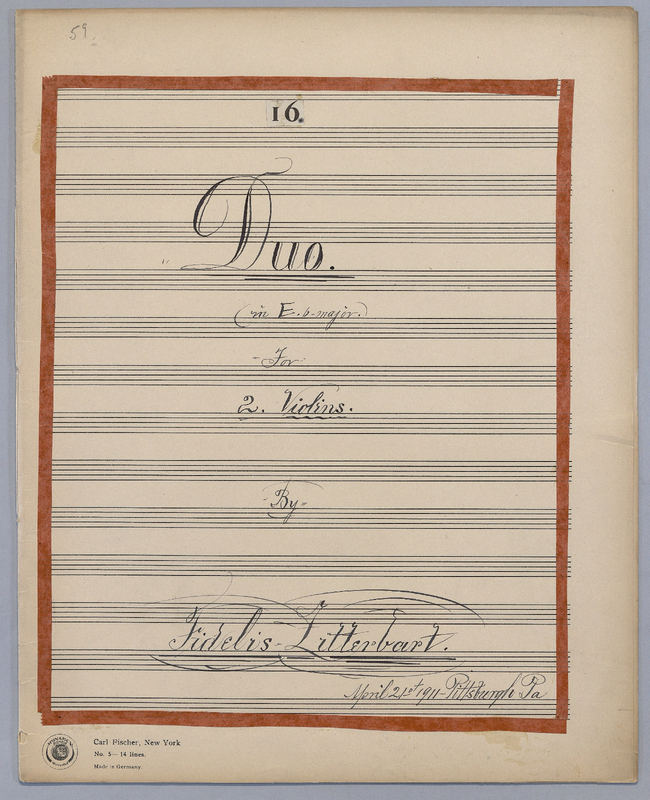 59.
16.
Duo.
(in E.b-major.)
For
2. Violins.
By
Fidelis Zitterbart.
April 21st 1911-Pittsburgh Pa
Carl Fischer, New York
No. 5— 14 lines.
Made in Germany.